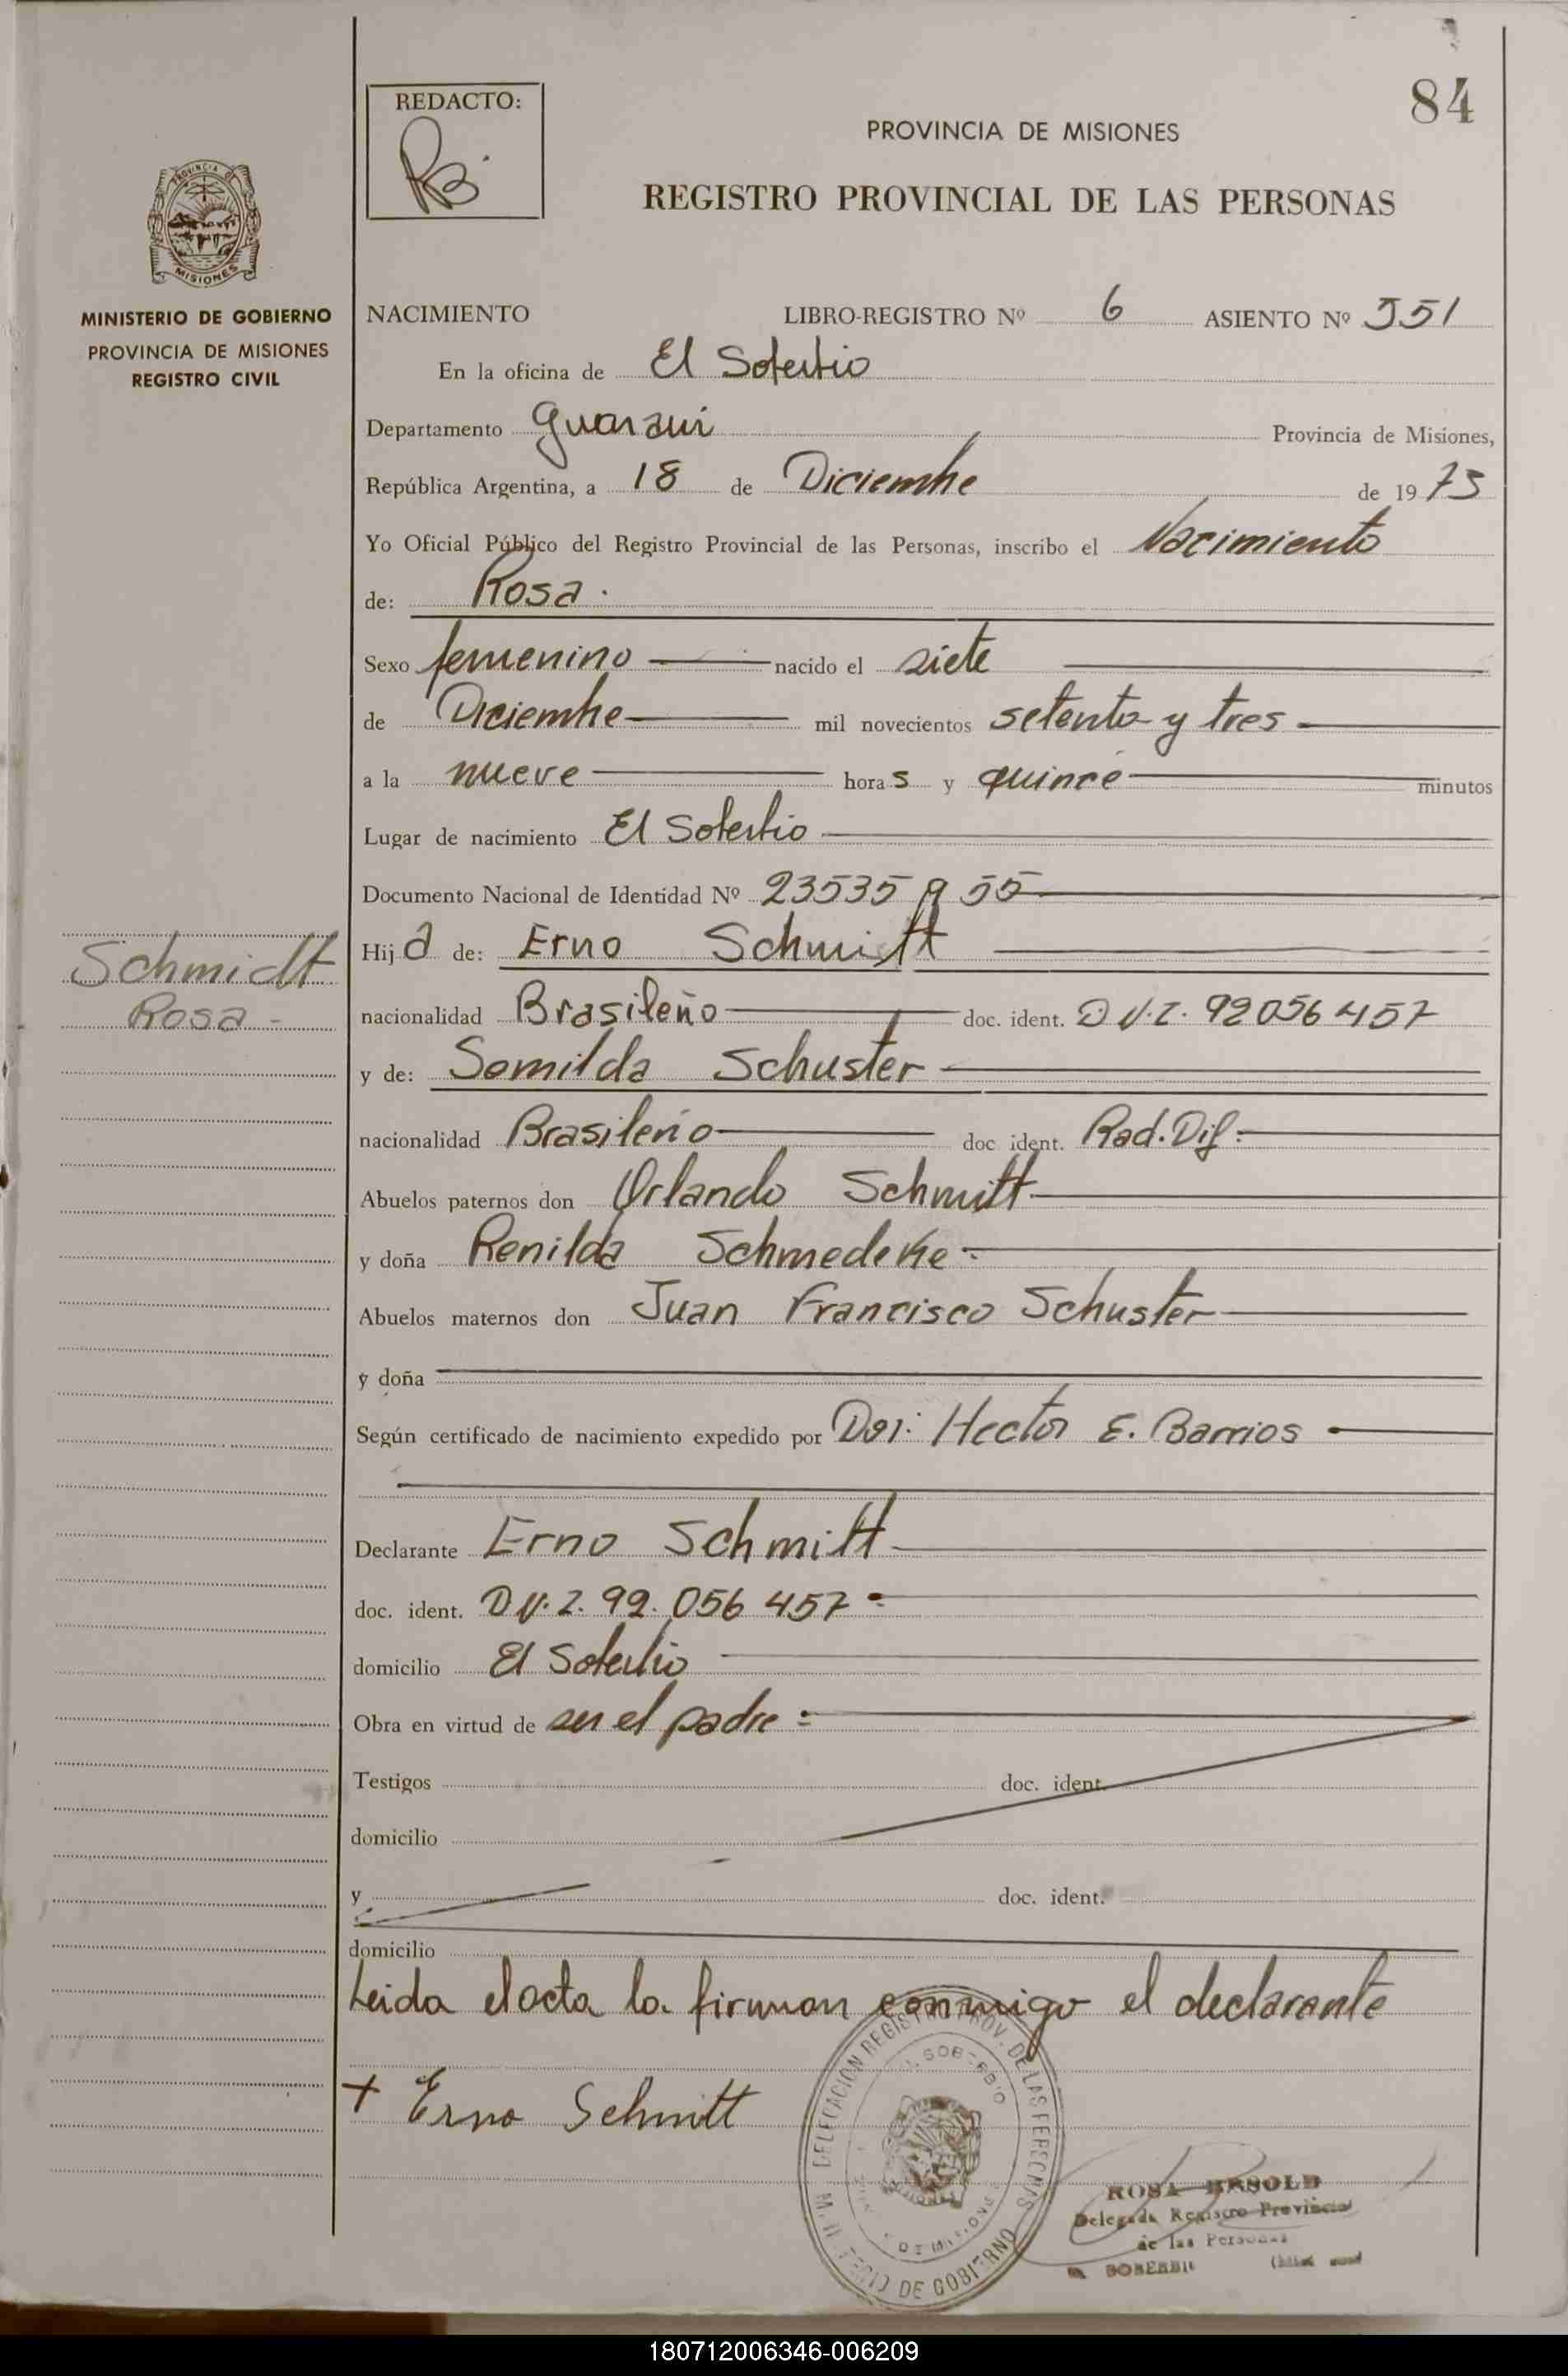 84
REDACTO:
PROVINCIA DE MISIONES
REGISTRO PROVINCIAL DE LAS PERSONAS
PROVINCIA DE
MISIONES
MINISTERIO DE GOBIERNO
PROVINCIA DE MISIONES
REGISTRO CIVIL
NACIMIENTO LIBRO-REGISTRO Nº 6 ASIENTO Nº 551
En la oficina de El Soberbio
Departamento Guarani Provincia de Misiones,
República Argentina, a 18 de Diciembre de 1973
Yo Oficial Público del Registro Provincial de las Personas, inscribo el Nacimiento
de: Rosa.
Sexo femenino nacido el siete
de Diciembre mil novecientos setenta y tres
a la nueve horas y quince minutos
Lugar de nacimiento El Soberbio
Documento Nacional de Identidad Nº 23535 955
Hija de: Erno Schmitt
Schmidt
Rosa -
nacionalidad Brasileño doc. ident. D N.I. 92056457
y de: Semilda Schuster
nacionalidad Brasileño doc ident. Rad. Dif.
Abuelos paternos don Orlando Schmitt
y doña Renilda Schmedeke
Abuelos maternos don Juan Francisco Schuster
y doña
Según certificado de nacimiento expedido por Dor: Hector E. Barrios
Declarante Erno Schmitt
doc. ident. D N.I. 92.056 457
domicilio El Soberbio
Obra en virtud de ser el padre
Testigos doc. ident.
domicilio
y doc. ident.
domicilio
Leida el acta la firman conmigo el declarante
+ Erno Schmitt
DELEGACION REGISTRO PROV. DE LAS PERSONAS
DE GOBIERNO
ROSA
Delegada Registro Provincial
de las Personas
180712006346-006209